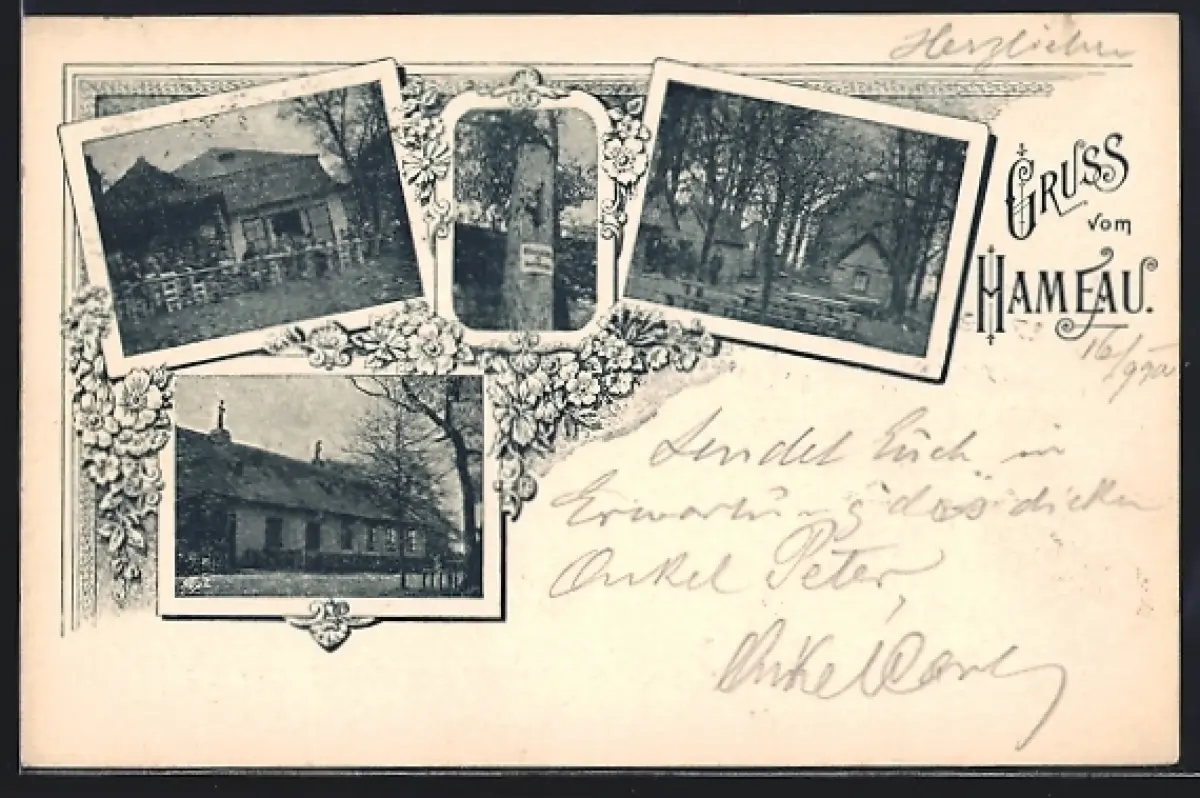 Herzlichen
GRUSS
vom
HAMEAU.
16/9
Sendet Euch in
Erwartung des dicken
Onkel Peter,
Onkel Carl